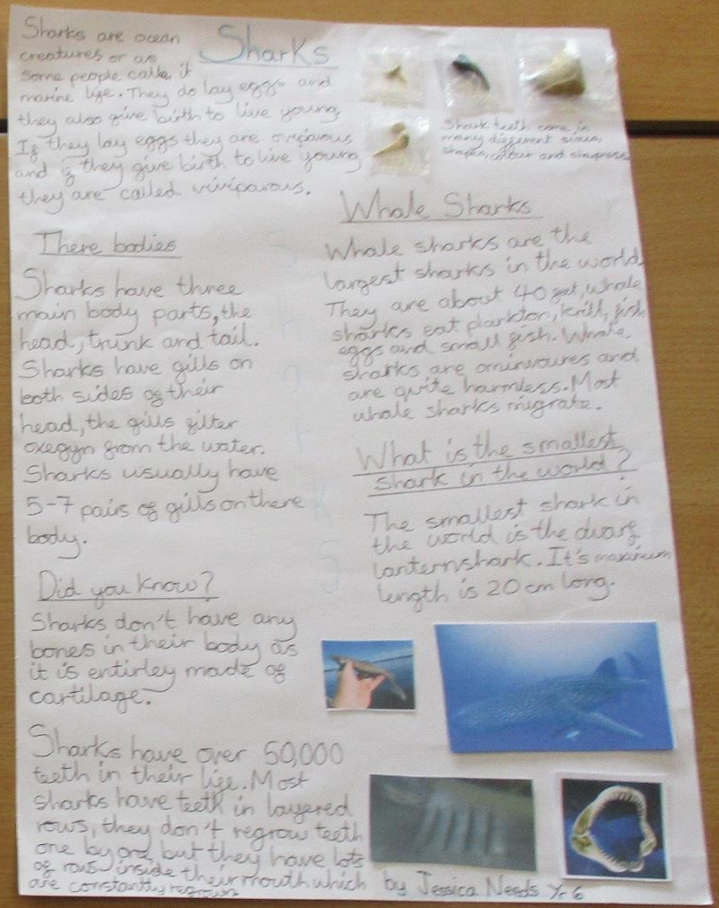 Sharks
Sharks are ocean
creatures or as
some people calle it
marine life. They do lay eggs and
they also give birth to live young,
If they lay eggs they are oviparous
and if they give birth to live young
they are called viviparous.
Shark teeth come in
many different sizes,
shapes, colour and
There bodies
Sharks have three
main body parts, the
head, trunk and tail.
Sharks have gills on
both sides of their
head, the gills filter
oxegyn from the water.
Sharks usually have
5-7 pairs of gills on there
body.
Did you know?
Sharks don't have any
bones in their body as
it is entirley made of
cartilage.
Sharks have over 50,000
teeth in their life. Most
sharks have teeth in layered
rows, they don't regrow teeth
one by one, but they have lots
of rows inside their mouth which
are constantly regrown
Sharks
Whale Sharks
Whale sharks are the
largest sharks in the world.
They are about 40 feet, whale
sharks eat plankton, krill, fish
eggs and small fish. Whale
sharks are ominvoures and
are quite harmless. Most
whale sharks migrate.
What is the smallest
shark in the world?
The smallest shark in
the world is the dwarf
lanternshark. It's maximum
length is 20cm long.
by Jessica Needs Yr 6